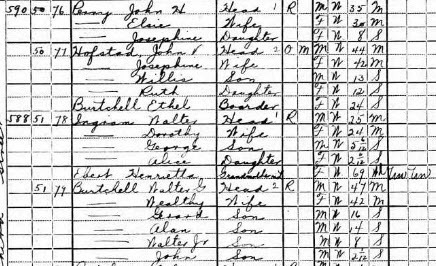 590 50 76 Penny John H Head 1 R M W 35 M
— Elsie Wife F W 30 M
— Josephine Daughter F W 8 S
50 77 Hofstad John V Head 2 O M M W 44 M
— Josephine Wife F W 42 M
— Willis Son M W 13 S
— Ruth Daughter F W 12 S
Burtchell Ethel Boarder F W 24 S
588 51 78 Ingram Walter Head 1 R M W 25 M
— Dorothy Wife F W 24 M
— George Son M W S
— Alice Daughter F W S
Ebert Henrietta F W 69
51 79 Burtchell Walter G Head 2 R M W 47 M
— Wealthy Wife F W 42 M
— Gerard Son M W 16 S
— Alan Son M W 14 S
— Walter Jr Son M W 8 S
— John Son M W S